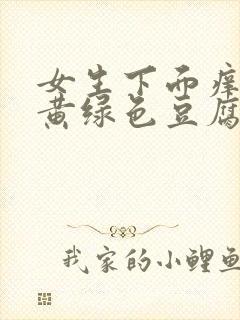 女生下面痒
黄绿色豆腐
我家的小鲤鱼